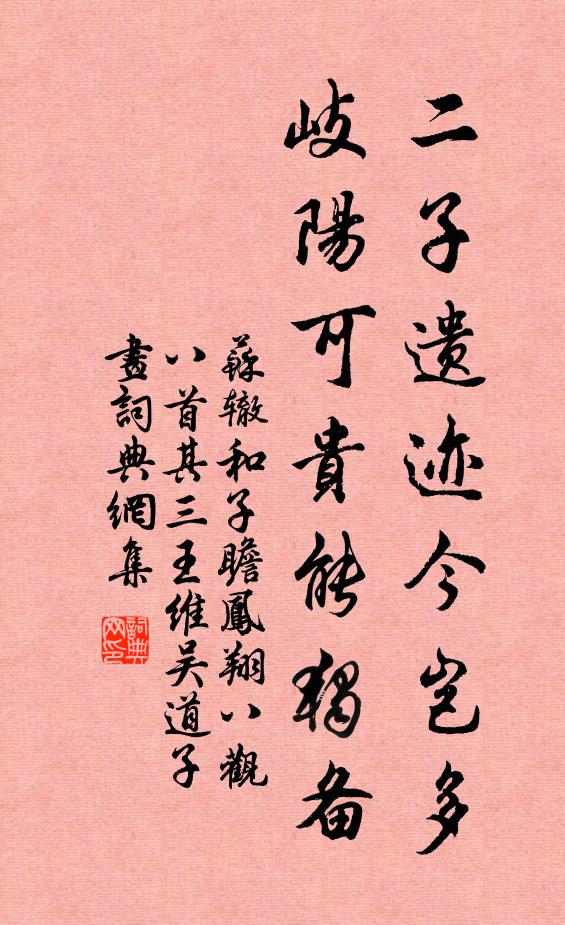 二子遗迹今岂多
岐陽可貴能獨备
蘇辙和子瞻鳳翔八觀
八首其三王维吴道子
畫詞典網集
詞典
网印